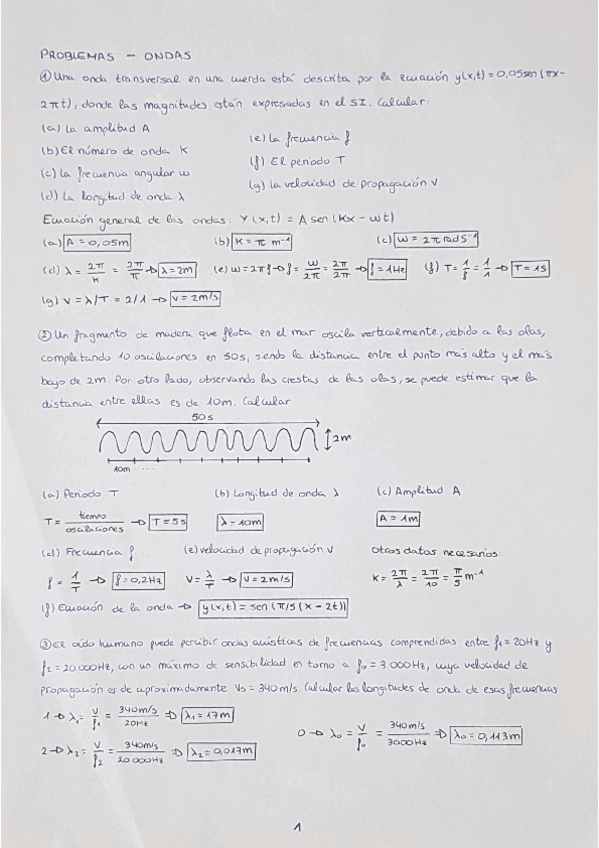 PROBLEMAS - ONDAS
① Una onda transversal en una cuerda está descrita por la ecuación y(x,t) = 0,05sen(πx-
2πt), donde las magnitudes están expresadas en el SI. Calcular:
(a) La amplitud A
(e) La frecuencia f
(b) El número de onda K
(f) El periodo T
(c) La frecuencia angular ω
(g) La velocidad de propagación V
(d) La longitud de onda λ
Ecuación general de las ondas: Y(x,t) = A sen(Kx - ωt)
(a) A = 0,05m (b) K = π m⁻¹ (c) ω = 2π rad S⁻¹
(d) λ = 2π/K = 2π/π → λ = 2m (e) ω = 2πf → f = ω/2π = 2π/2π → f = 1Hz (f) T = 1/f = 1/1 → T = 1S
(g) V = λ/T = 2/1 → V = 2m/s
② Un fragmento de madera que flota en el mar oscila verticalmente, debido a las olas,
completando 10 oscilaciones en 50s, siendo la distancia entre el punto más alto y el más
bajo de 2m. Por otro lado, observando las crestas de las olas, se puede estimar que la
distancia entre ellas es de 10m. Calcular
50s
2m
10m ...
(a) Periodo T (b) Longitud de onda λ (c) Amplitud A
T = tiempo/oscilaciones → T = 5s λ = 10m A = 1m
(d) Frecuencia f (e) velocidad de propagación V Otros datos necesarios:
f = 1/T → f = 0,2Hz V = λ/T → V = 2m/s K = 2π/λ = 2π/10 = π/5 m⁻¹
(f) Ecuación de la onda → y(x,t) = sen(π/5(x - 2t))
③ El oído humano puede percibir ondas acústicas de frecuencias comprendidas entre f₁ = 20Hz y
f₂ = 20 000Hz, con un máximo de sensibilidad en torno a f₀ = 3 000Hz, cuya velocidad de
propagación es de aproximadamente V₀ = 340m/s. Calcular las longitudes de onda de esas frecuencias
1 → λ₁ = V/f₁ = 340m/s/20Hz ⇒ λ₁ = 17m
0 → λ₀ = V/f₀ = 340m/s/3000Hz ⇒ λ₀ = 0,113m
2 → λ₂ = V/f₂ = 340m/s/20 000Hz ⇒ λ₂ = 0,017m
1